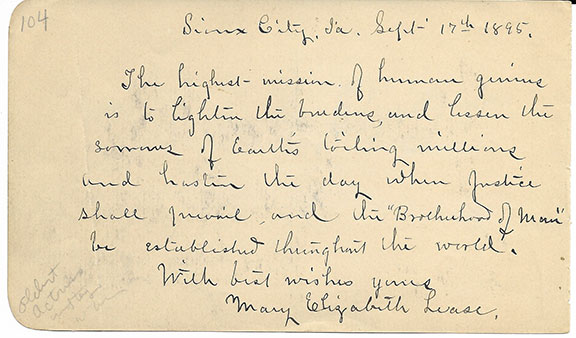 104
Sioux City, Ia. Sept 17th 1895.
The highest mission of human genius
is to lighten the burdens, and lessen the
sorrows of Earth's toiling millions
and hasten the day when Justice
shall prevail, and the "Brotherhood of Man"
be established throughout the world.
With best wishes yours
Mary Elizabeth Lease.
oldest
actress